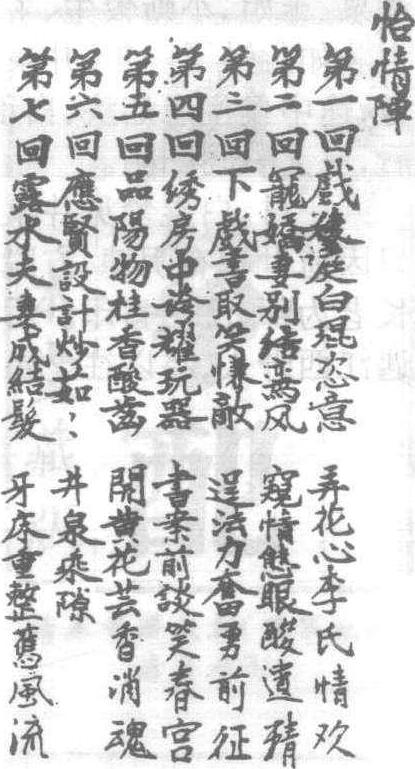 怡情陣
第一回戲蘭庭白琨恣意 弄花心李氏情欢
第二回寵嬌妻别结鸞风 窺情態眼酸遺精
第三回下戲書取笑慊敵 逞活力奮勇前征
第四回绣房中誇耀玩器 書案前談笑春宫
第五回品陽物桂香酸齒 開黄花芸香消魂
第六回應賢設計炒茹： 井泉乘隙
第七回露水夫妻成結髮 牙床重整舊風流